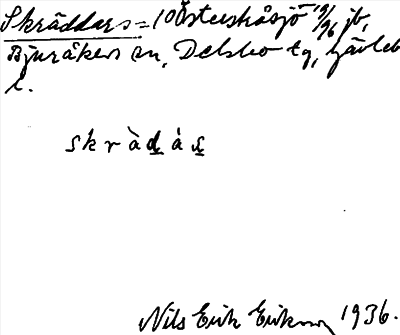 Skräddars = 10 Österskåsjö 19/96 jb,
Bjuråkers sn, Delsbo tg, Gävleb
l.
skràdás
Nils Erik Eriksson 1936.